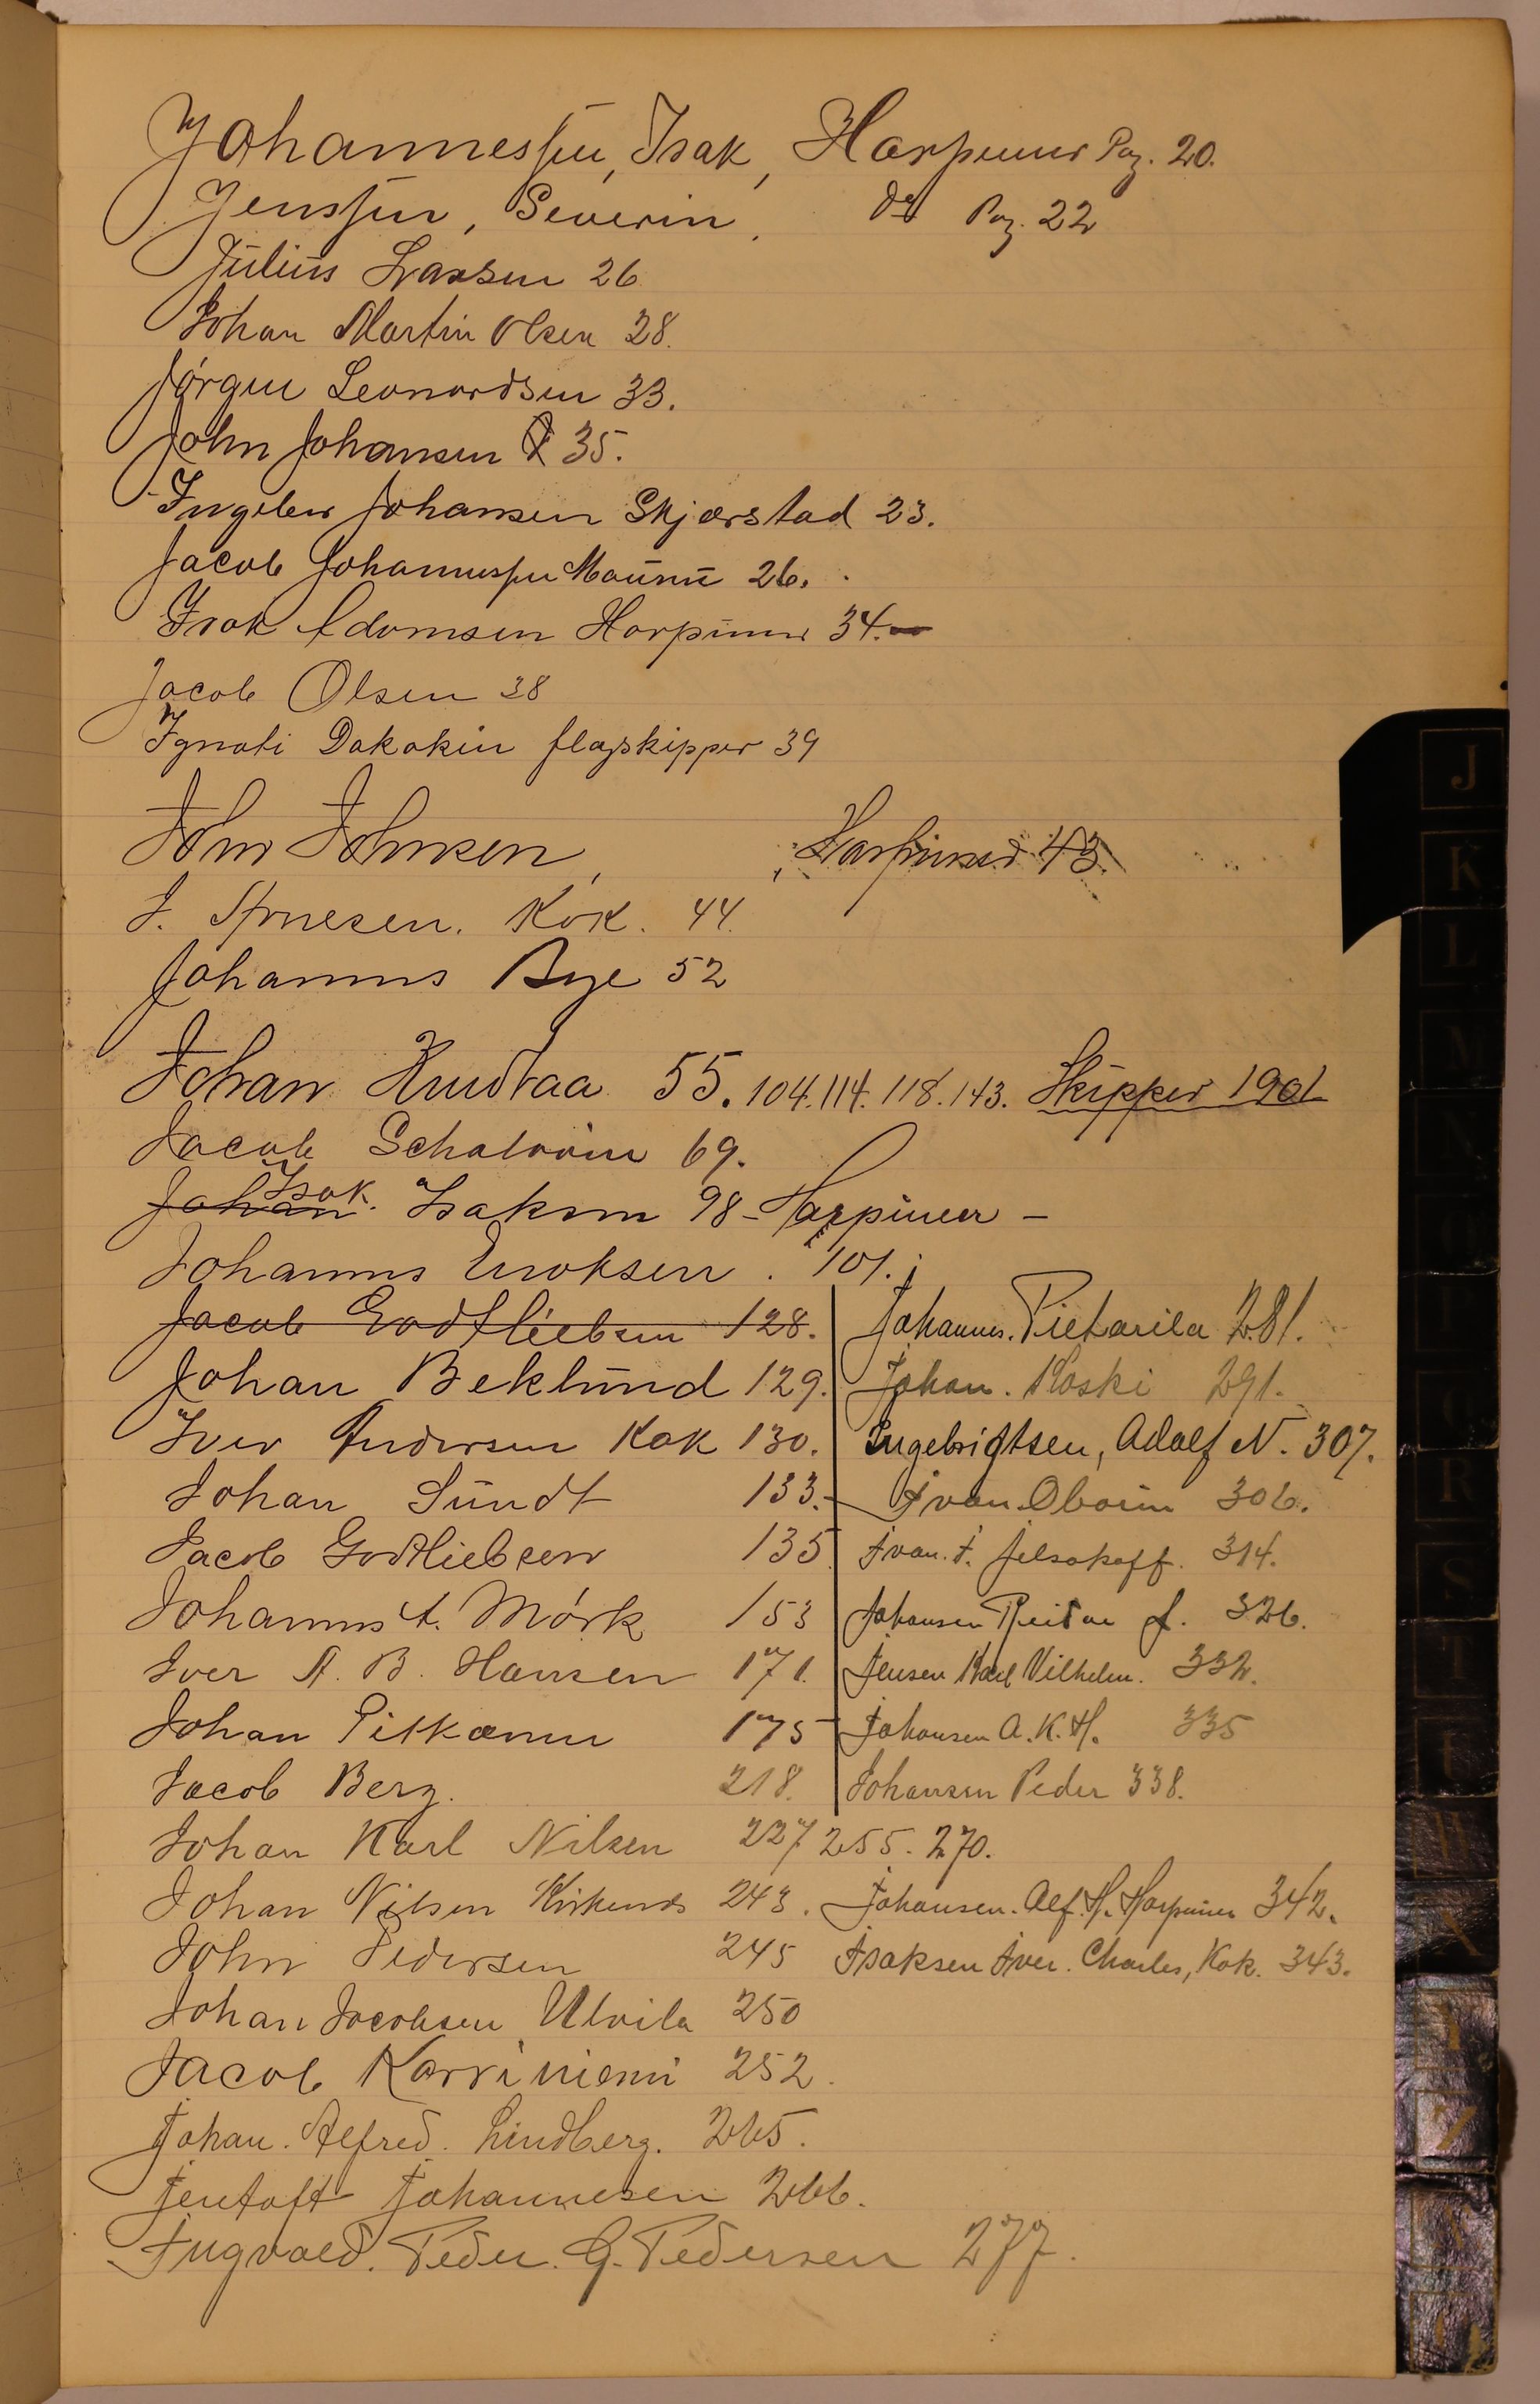 Johannessen, Isak, Harpuner Pag. 20.
Jenssen, Severin, do Pag. 22
Julius Larssen 26
Johan Martin Olsen 28.
Jörgen Leonardsen 33.
John Johansen 35.
Ingelew Johansen Skjærstad 23.
Jacob Johannessen Maunu 26.
Isak Adamsen Harpuner 34.
Jacob Olsen 38
Ignati Dakakin flagskipper 39
John Johnsen, Harpuner 43.
J. Arnesen. Kok. 44.
Johannes Bye 52
Johan Knudtaa 55. 104. 114. 118. 143. Skipper 1901
Jacob 69.
Johan Isak. Isaksen 98 - Harpuner -
Johannes Enoksen. 101.
Jacob Godtliebsen 128.
Johan Beklund 129.
Iver Andersen Kok 130.
Johan Sundt 133.
Jacob Godtliebsen 135
Johannes A. Mörk 153
Iver A. B. Hansen 171.
Johan Pitkænen 175
Jacob Berg. 218.
Johan Karl Nilsen 227 255. 270.
Johan Nilsen Kirkenes 243.
John Pedersen 245
Johan Jacobsen Ulvila 250
Jacob Karviniemi 252.
Johan. Alfred. Lindberg. 265.
Jentoft Johannesen 266.
Ingvald. Peder. G. Pedersen 277.
Johannes. Pietarila 281.
Johan. Koski 291.
Ingebrigtsen, Adolf N. 307.
Ivan. Oboin 306.
Ivan. I. Jelsakoff. 314.
Johansen Reidar J. 326.
Jensen Karl Vilhelm. 332.
Johansen A. K. H. 335
Johansen Peder 338.
Johansen. Alf. H. Harpuner 342.
Isaksen Iver. Charles, Kok. 343.
J
K
L
M
N
R
S
T